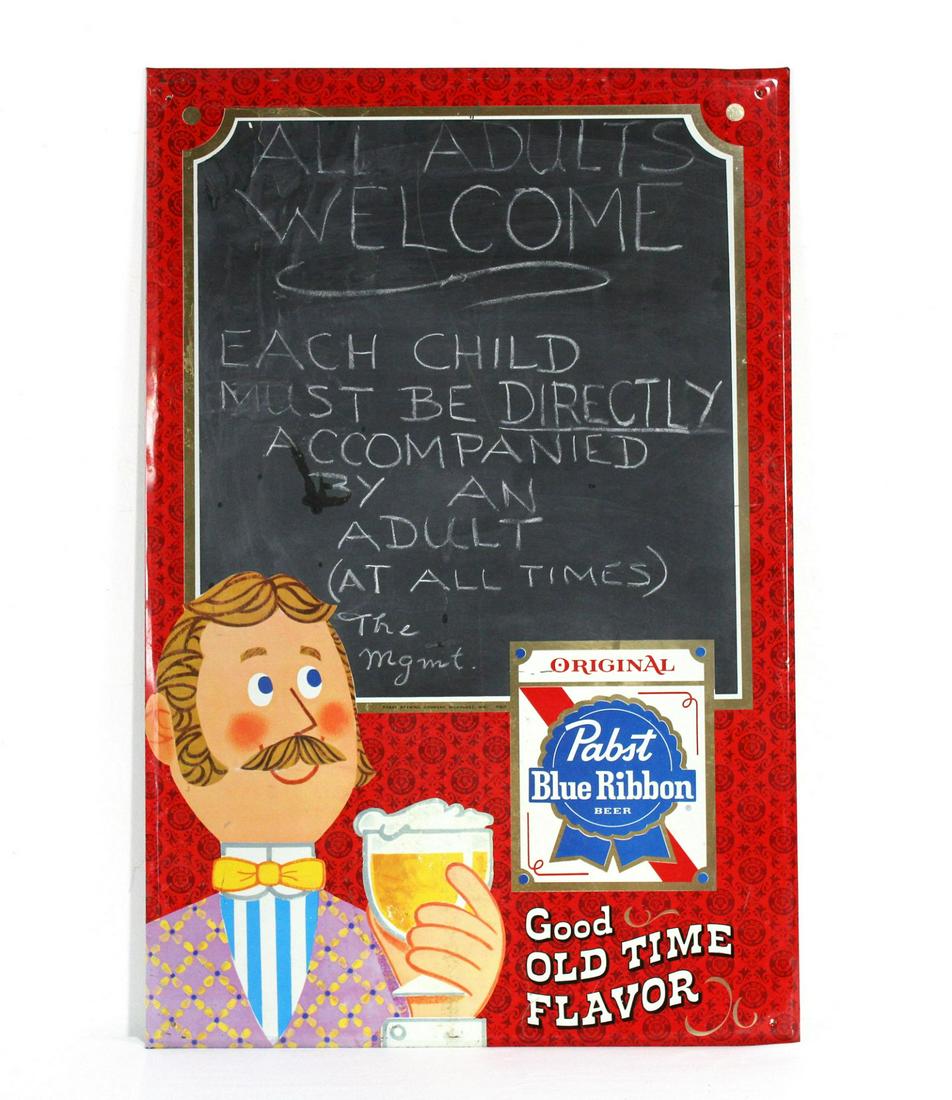 ALL ADULTS
WELCOME
EACH CHILD
MUST BE DIRECTLY
ACCOMPANIED
BY AN
ADULT
(AT ALL TIMES)
The
Mgmt.
ORIGINAL
Pabst
Blue Ribbon
BEER
®
Good
OLD TIME
FLAVOR